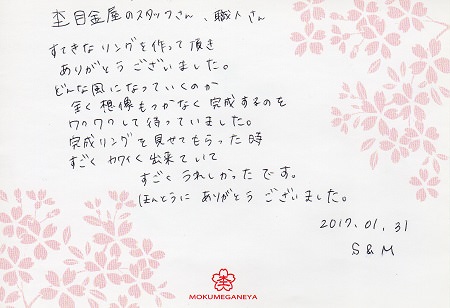 杢目金屋のスタッフさん、職人さん
すてきなリングを作って頂き
ありがとうございました。
どんな風になっていくのか
全く想像もつかなく完成するのを
ワクワクして待っていました。
完成リングを見せてもらった時
すごくカワイく出来ていて
すごくうれしかったです。
ほんとうにありがとうございました。
2017.01.31
S&M
MOKUMEGANEYA